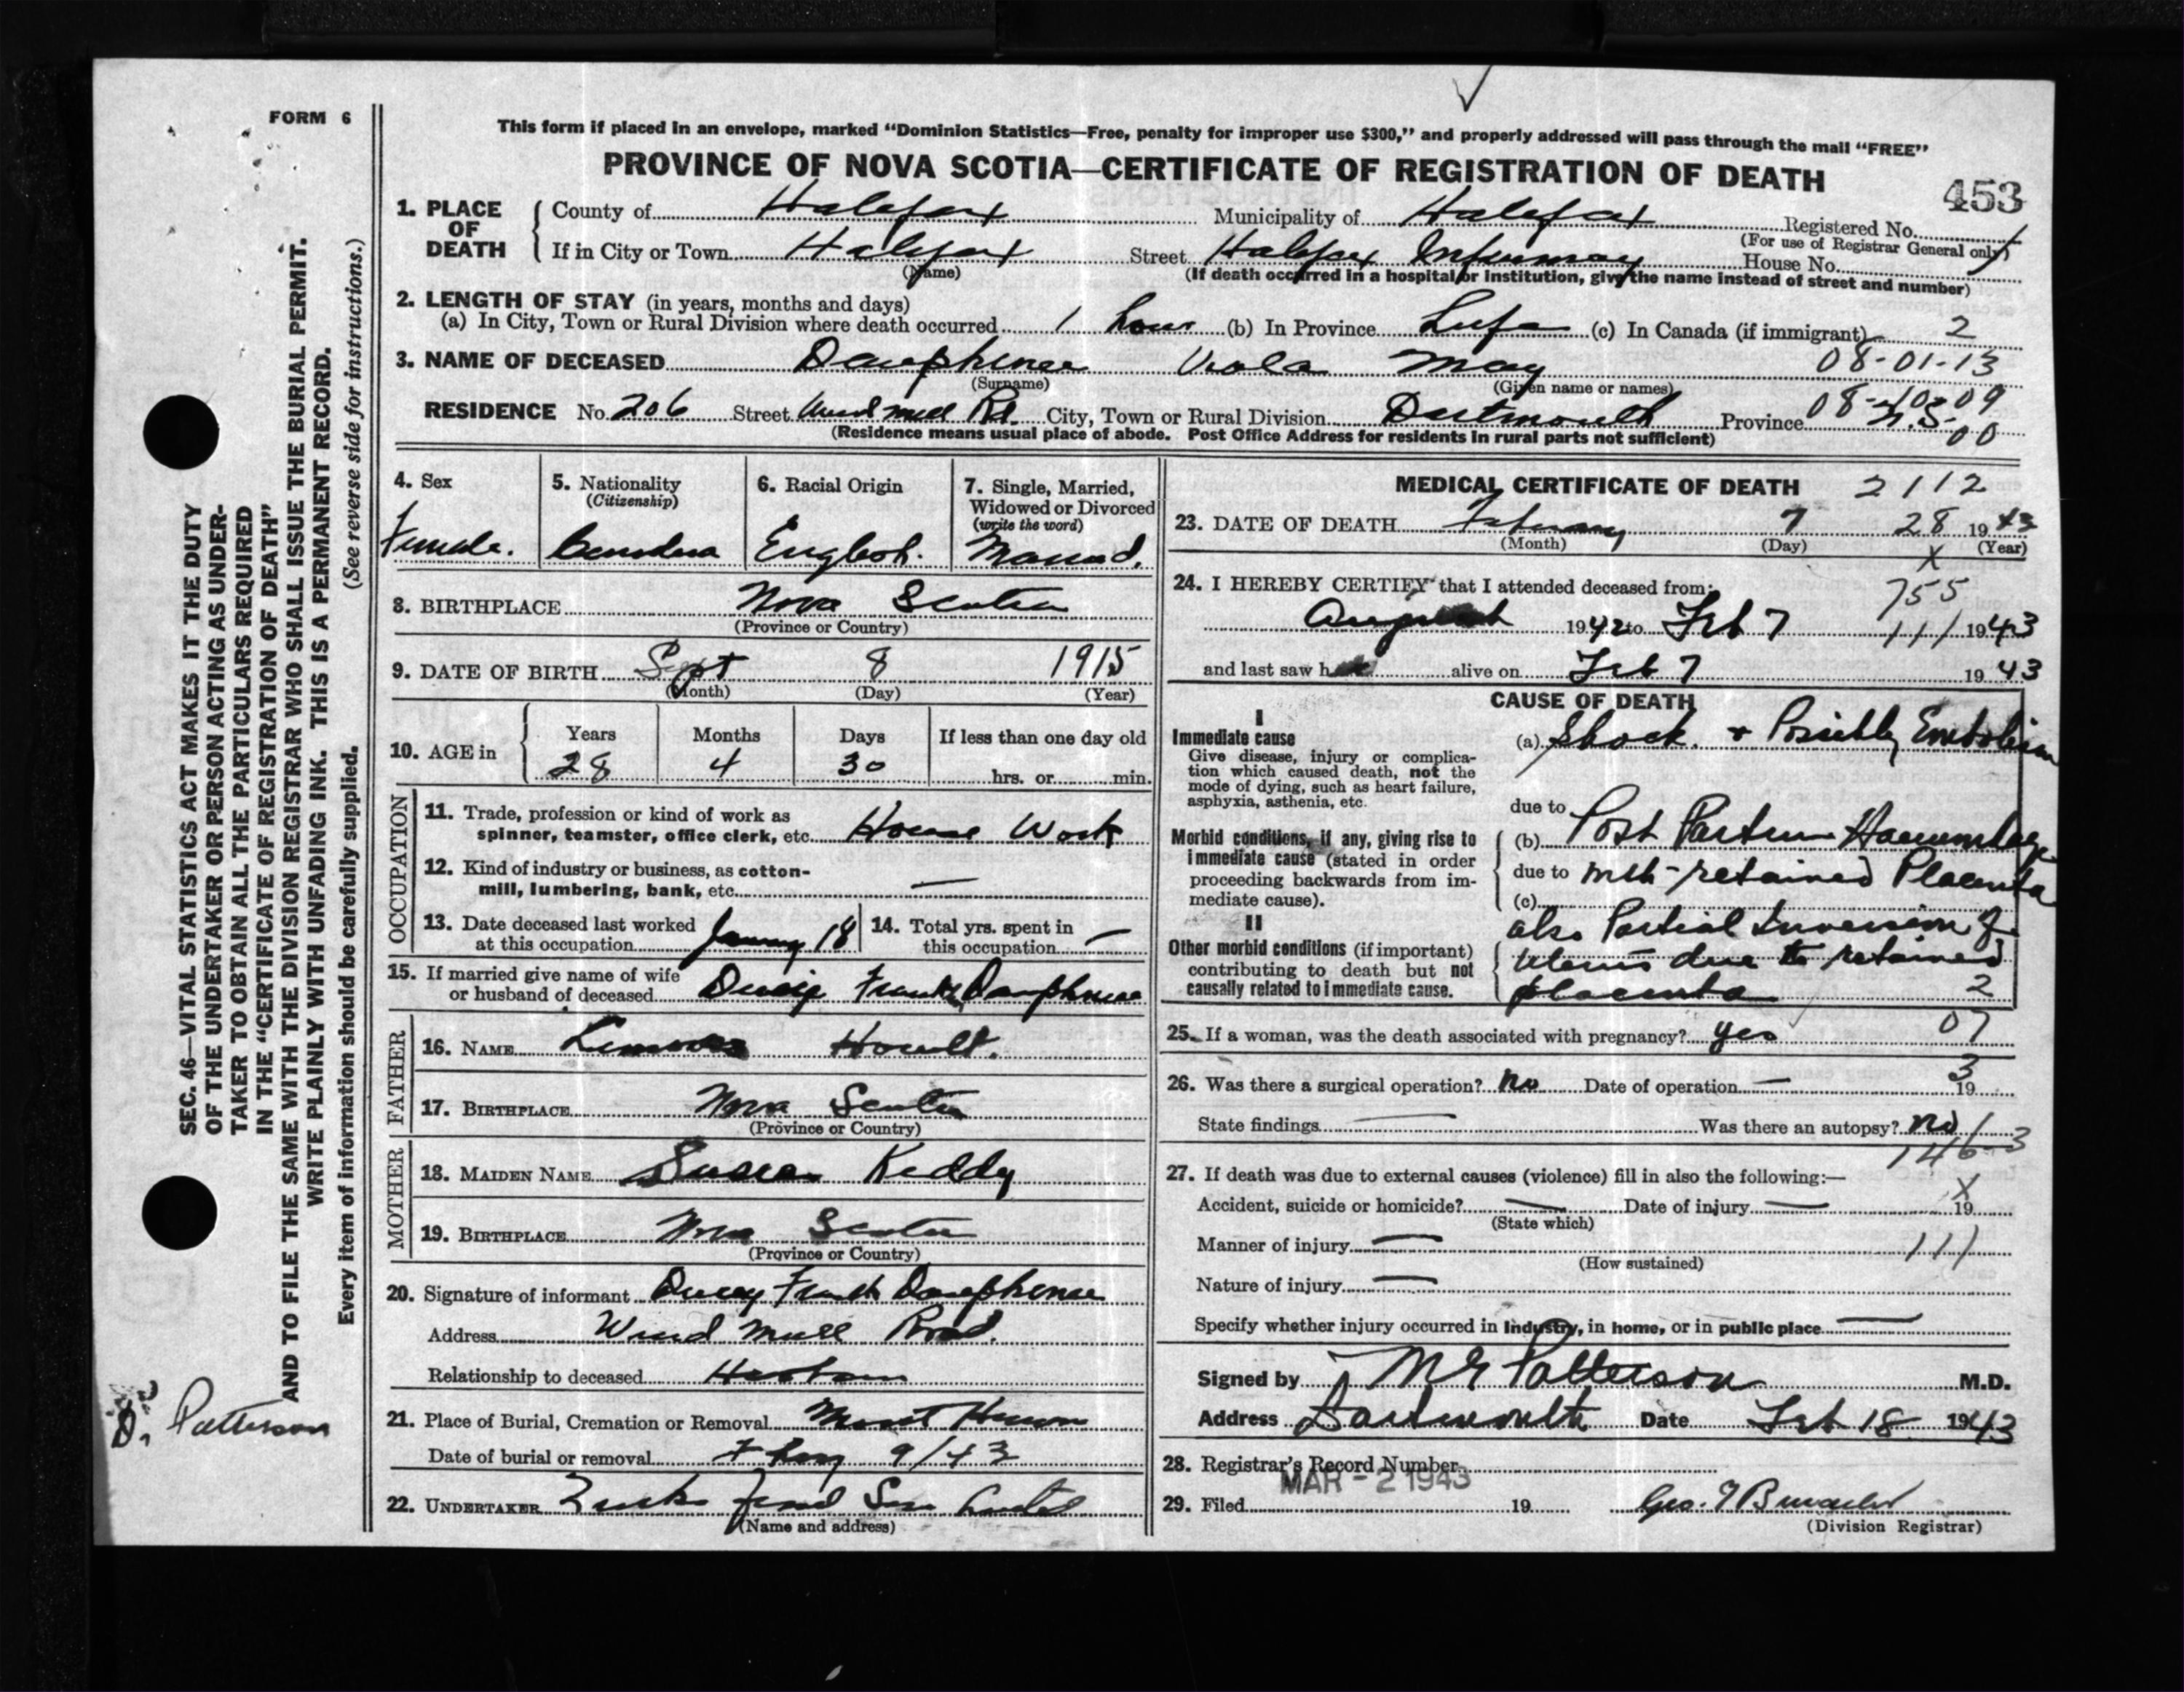 FORM 6
This form if placed in an envelope, marked “Dominion Statistics—Free, penalty for improper use $300,” and properly addressed will pass through the mail “FREE”
PROVINCE OF NOVA SCOTIA—CERTIFICATE OF REGISTRATION OF DEATH
453
1. PLACE OF DEATH
County of Halifax Municipality of Halifax Registered No.
(For use of Registrar General only)
If in City or Town Halifax Street Halifax Infirmary House No.
(Name) (If death occurred in a hospital or institution, give the name instead of street and number)
2. LENGTH OF STAY (in years, months and days)
(a) In City, Town or Rural Division where death occurred 1 hour (b) In Province Life (c) In Canada (if immigrant) 2
08-01-13
3. NAME OF DECEASED Dauphinee Viola May
(Surname) (Given name or names)
08-10-09
RESIDENCE No. 206 Street Windmill Rd. City, Town or Rural Division Dartmouth Province N.S.
00
(Residence means usual place of abode. Post Office Address for residents in rural parts not sufficient)
4. Sex
Female.
5. Nationality
(Citizenship)
6. Racial Origin
English.
7. Single, Married,
Widowed or Divorced
(write the word)
Married.
8. BIRTHPLACE Nova Scotia
(Province or Country)
9. DATE OF BIRTH Sept 8 1915
(Month) (Day) (Year)
10. AGE in
Years Months Days If less than one day old
28 4 30 hrs. or min.
OCCUPATION
11. Trade, profession or kind of work as
spinner, teamster, office clerk, etc. House Work
12. Kind of industry or business, as cotton-
mill, lumbering, bank, etc. —
13. Date deceased last worked
at this occupation January 18
14. Total yrs. spent in
this occupation —
15. If married give name of wife
or husband of deceased Frank Dauphinee
FATHER
16. NAME Hoult.
17. BIRTHPLACE Nova Scotia
(Province or Country)
MOTHER
18. MAIDEN NAME Susan Keddy
19. BIRTHPLACE Nova Scotia
(Province or Country)
20. Signature of informant Frank Dauphinee
Address Wind Mill Road.
Relationship to deceased Husban
21. Place of Burial, Cremation or Removal Mount Hermon
Date of burial or removal 9/43
22. UNDERTAKER and Son
(Name and address)
MEDICAL CERTIFICATE OF DEATH 2112
23. DATE OF DEATH February 7 28 1943
(Month) (Day) (Year)
X
24. I HEREBY CERTIFY that I attended deceased from:
755
August 1942 to Feb 7 111 1943
and last saw h alive on Feb 7 1943
CAUSE OF DEATH
I
Immediate cause
Give disease, injury or complica-
tion which caused death, not the
mode of dying, such as heart failure,
asphyxia, asthenia, etc.
(a) Shock. + Possibly Embolism
due to
Morbid conditions, if any, giving rise to
immediate cause (stated in order
proceeding backwards from im-
mediate cause).
(b) Post Partum Haemorrhage
due to with retained Placenta
(c)
II
Other morbid conditions (if important)
contributing to death but not
causally related to immediate cause.
also Partial Inversion of
Uterus due to retained
placenta 2
25. If a woman, was the death associated with pregnancy? yes 07
3
26. Was there a surgical operation? no Date of operation — 19
State findings — Was there an autopsy? no 1
146-3
27. If death was due to external causes (violence) fill in also the following:—
X
Accident, suicide or homicide? — Date of injury — 19
(State which)
Manner of injury — 111
(How sustained)
Nature of injury —
Specify whether injury occurred in Industry, in home, or in public place —
Signed by Patterson M.D.
Address Dartmouth Date Feb 18 1943
28. Registrar's Record Number
MAR - 2 1943
29. Filed 19 Geo.
(Division Registrar)
SEC. 46—VITAL STATISTICS ACT MAKES IT THE DUTY
OF THE UNDERTAKER OR PERSON ACTING AS UNDER-
TAKER TO OBTAIN ALL THE PARTICULARS REQUIRED
IN THE “CERTIFICATE OF REGISTRATION OF DEATH”
AND TO FILE THE SAME WITH THE DIVISION REGISTRAR WHO SHALL ISSUE THE BURIAL PERMIT.
WRITE PLAINLY WITH UNFADING INK. THIS IS A PERMANENT RECORD.
Every item of information should be carefully supplied. (See reverse side for instructions.)
Patterson